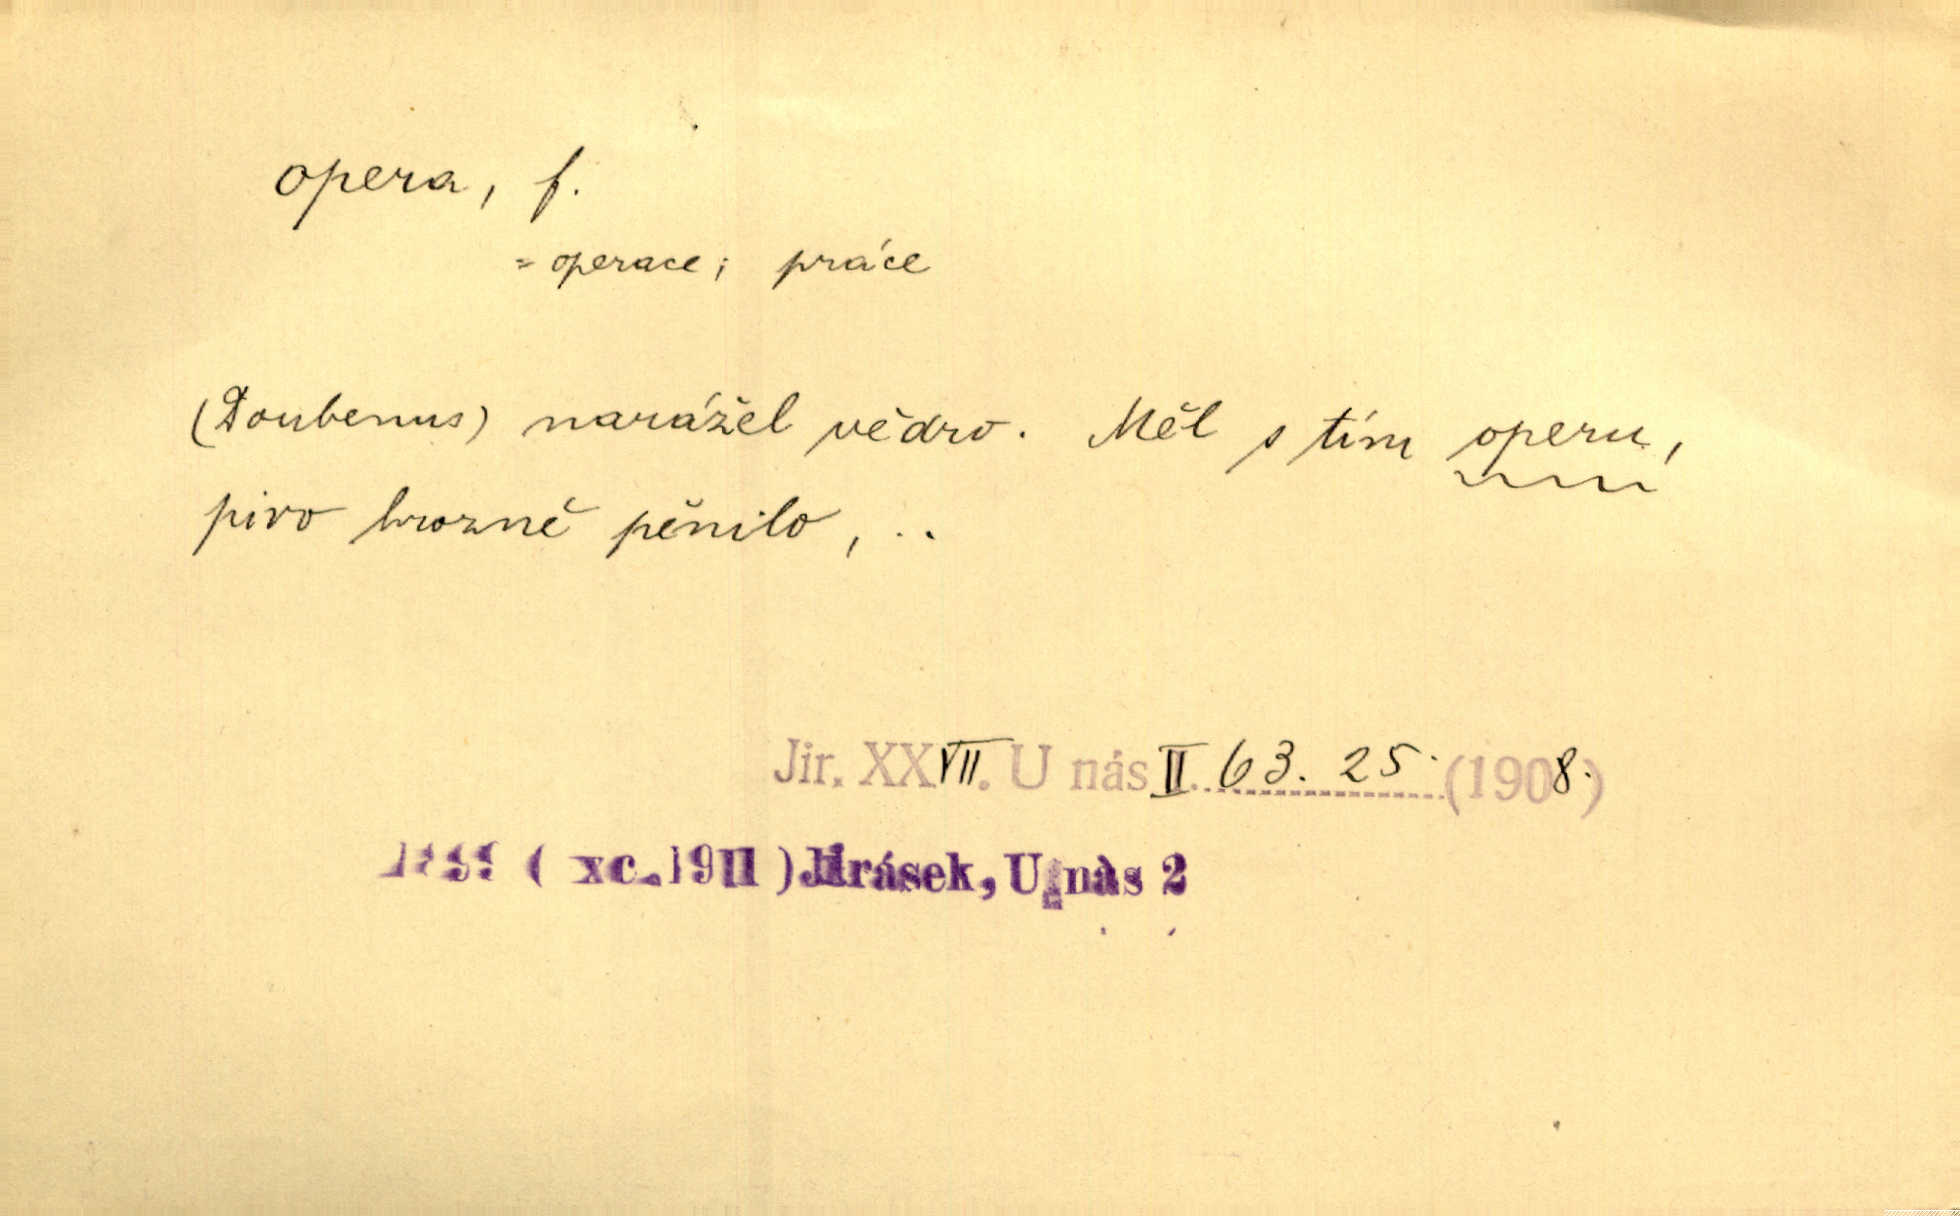 opera, f.
= operace; práce
(Doubenus) narážel vědro. Měl s tím operu,
pivo hrozně pěnilo, ..
Jir. XXVII. U nás II. 63. 25. (1908.)
( xc. 1911 ) Jirásek, U nás 2